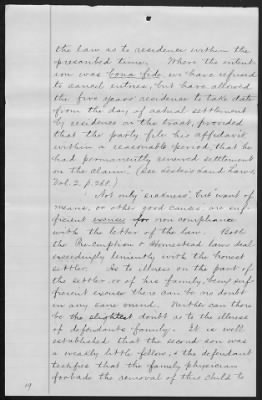 the law as to residence within the
prescribed time. Where the intent-
ion was bona fide, we have refused
to cancel entries, but have allowed
the five years' residence to take date
from the day of actual settlement
by residence on the tract, provided
that the party file his affidavit
within a reasonable period, that he
had permanently renewed settlement
on the claim. (See Lester's Land Laws,
Vol. 2, p. 261.)
Not only "sickness", but "want of
means, or other good cause, are suf-
ficient excuses for non compliance
with the letter of the law. Both
the Preemption & Homestead laws deal
exceedingly leniently with the honest
settler. As to illness on the part of
the settler or of his family, being suf-
ficient excuse there can be no doubt
in any sane mind. Neither can there
be the slightest doubt as to the illness
of defendant's family. It is well
established that the second son was
a weakly little fellow, & the defendant
testifies that the family physician
forbade the removal of this child to
19